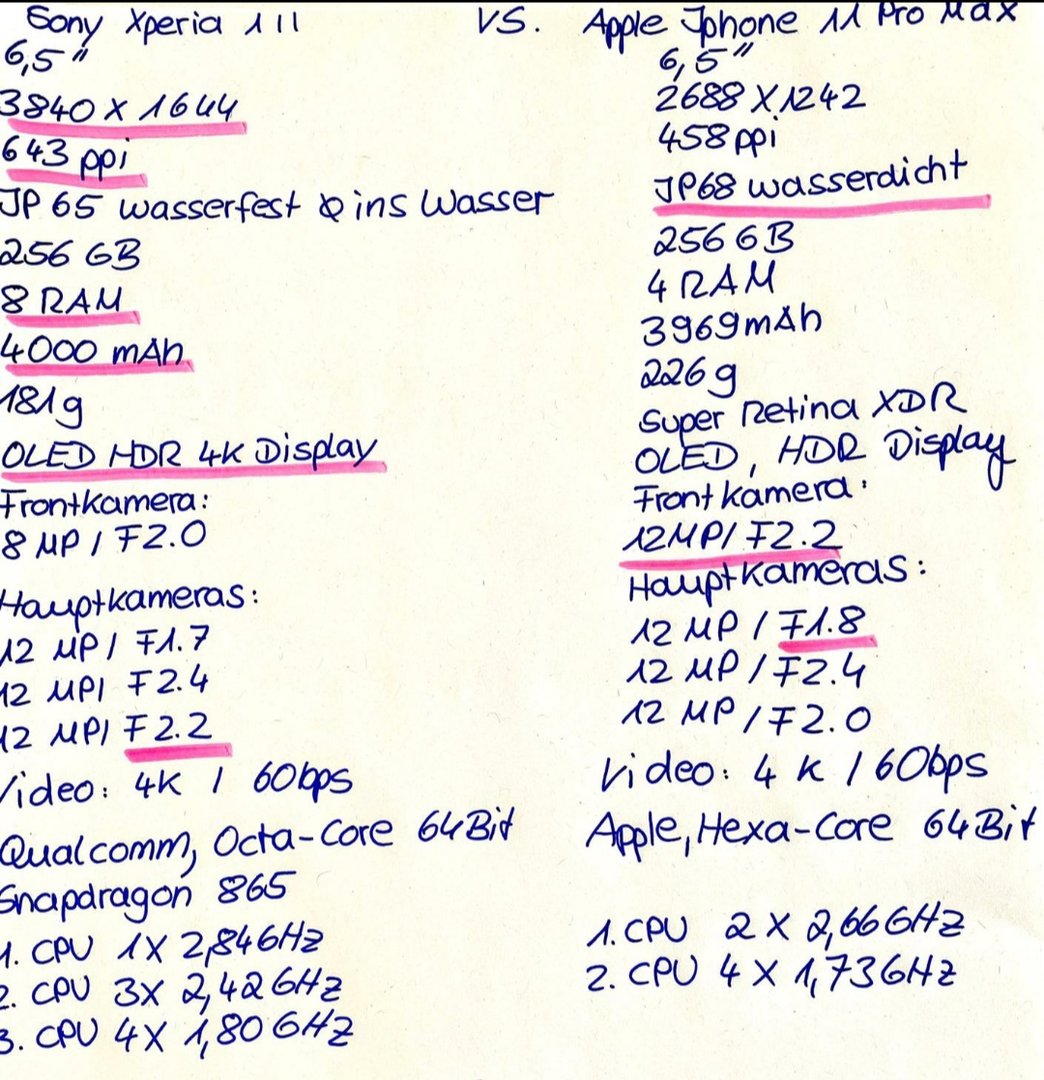 Sony Xperia 1 II vs. Apple Iphone 11 Pro Max
6,5"
3840 x 1644
643 ppi
IP 65 wasserfest ins Wasser
256 GB
8 RAM
4000 mAh
181g
OLED HDR 4K Display
Frontkamera:
8 MP / F2.0
Hauptkameras:
12 MP / F1.7
12 MP / F2.4
12 MP / F2.2
Video: 4K / 60bps
Qualcomm, Octa-Core 64Bit
Snapdragon 865
1. CPU 1X 2,84GHz
2. CPU 3X 2,42GHz
3. CPU 4X 1,80GHz
6,5"
2688 X 1242
458 ppi
IP68 wasserdicht
256 GB
4 RAM
3969mAh
226g
Super Retina XDR
OLED, HDR Display
Frontkamera:
12MP / F2.2
Hauptkameras:
12 MP / F1.8
12 MP / F2.4
12 MP / F2.0
Video: 4 K / 60bps
Apple, Hexa-Core 64Bit
1. CPU 2 X 2,66GHz
2. CPU 4 X 1,73GHz